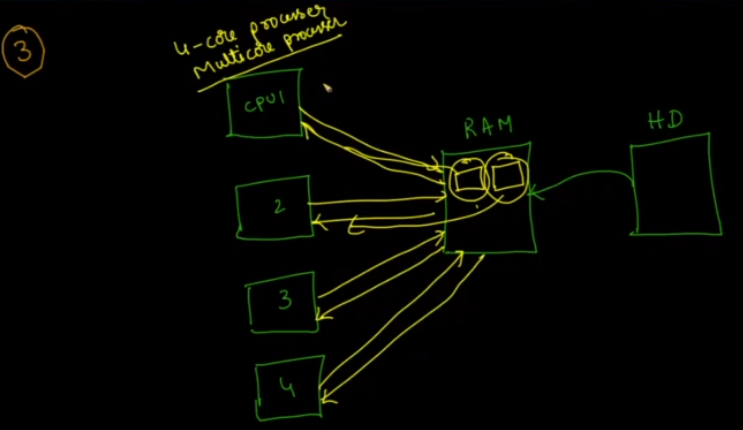 3
4-core processer
Multicore processer
CPU1
RAM
HD
2
3
4